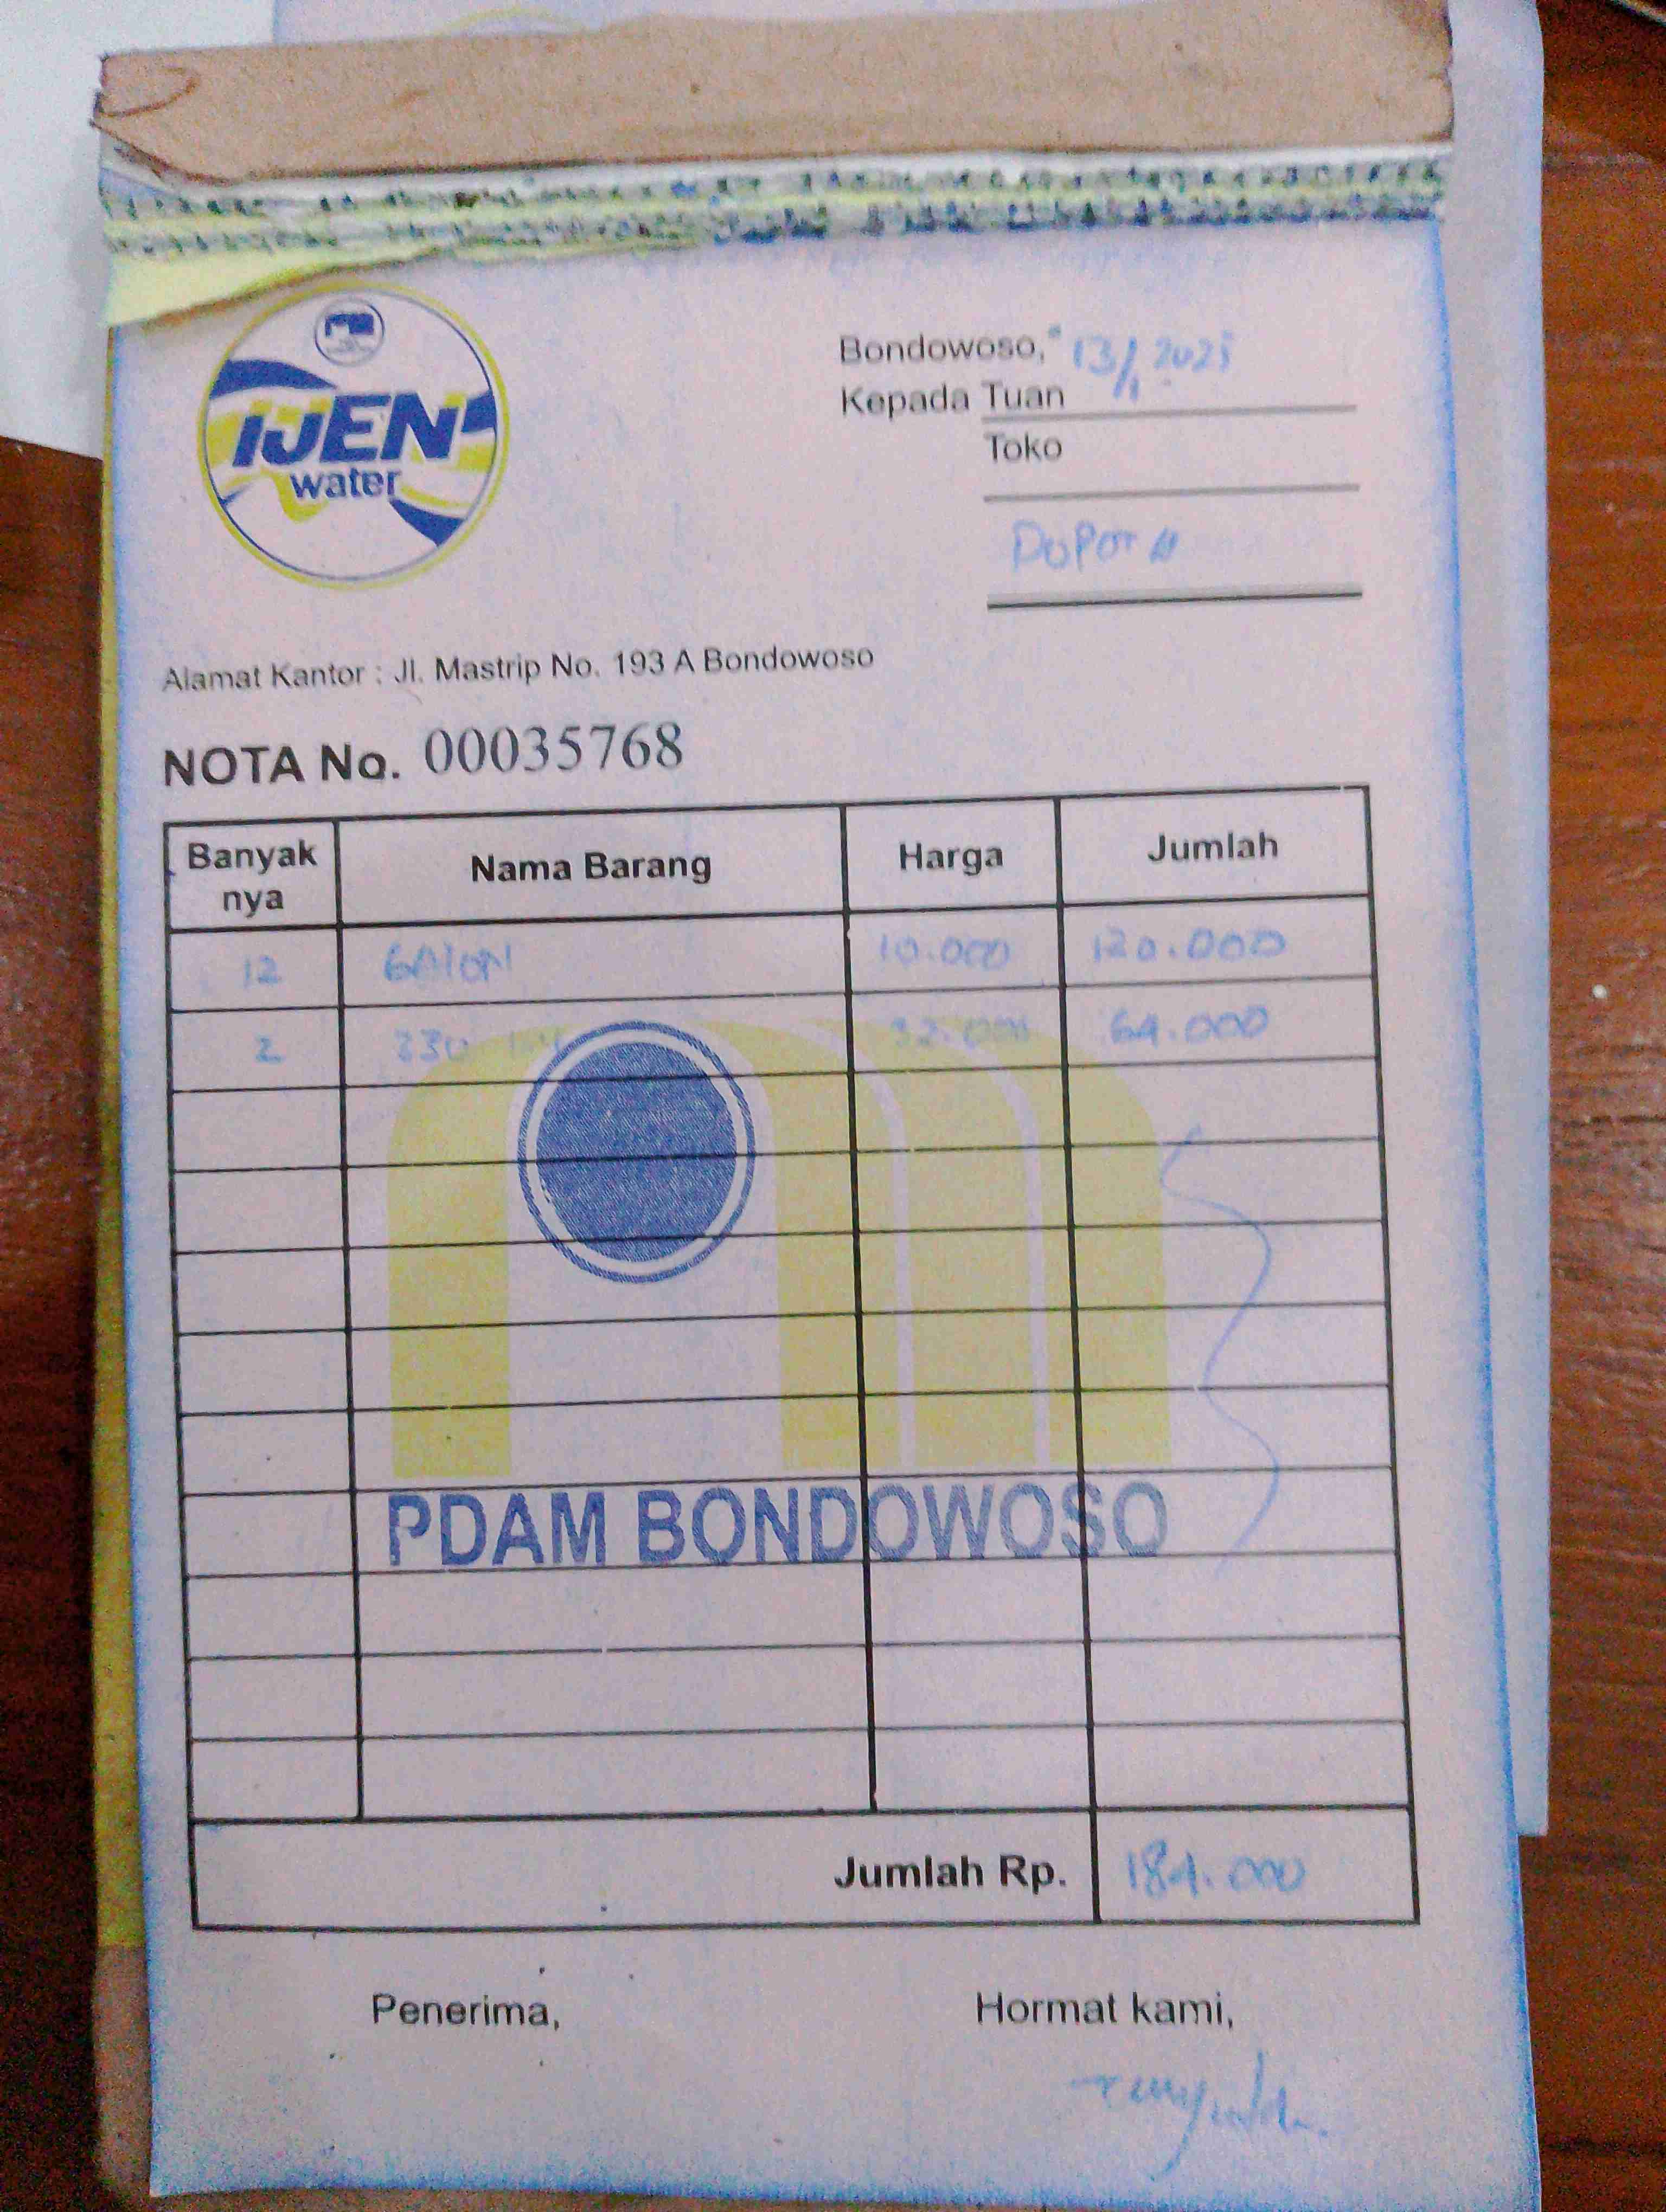 IJEN
water
Bondowoso, 13/1 2025
Kepada Tuan
Toko
Alamat Kantor : Jl. Mastrip No. 193 A Bondowoso
NOTA No. 00035768
Banyak nya Nama Barang Harga Jumlah
12 GALON 10.000 120.000
2 330 32.000 64.000
PDAM BONDOWOSO
Jumlah Rp. 184.000
Penerima, Hormat kami,